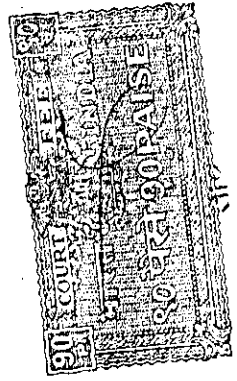 90 90
COURT FEE
INDIA
९० पैसे 90 PAISE